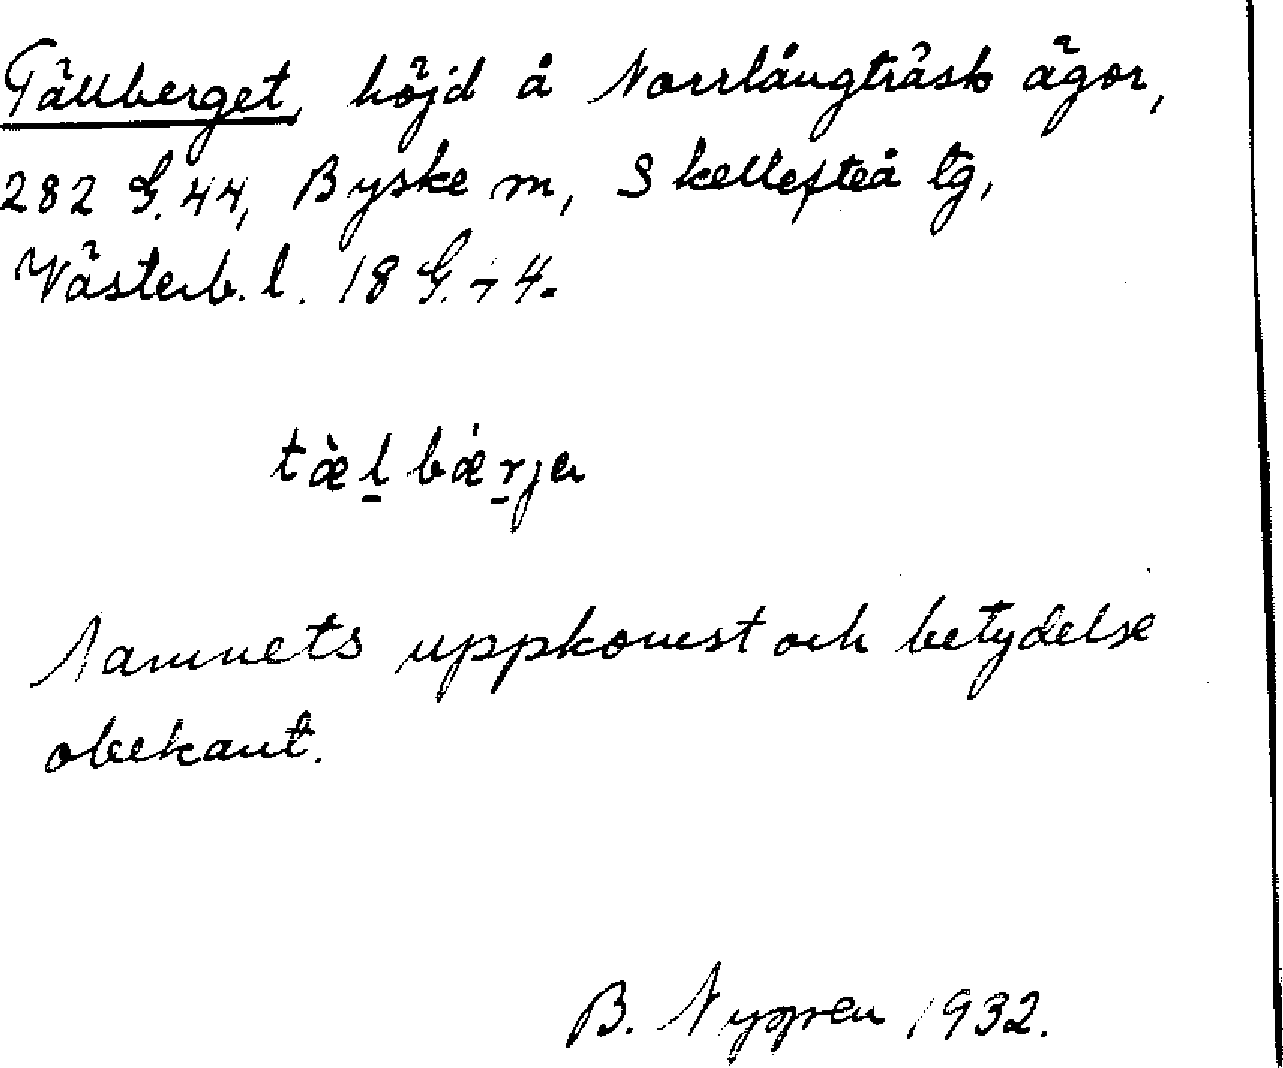 Tällberget, höjd å Norrlångträsk ägor,
282 G. 44, Byske sn, Skellefteå tg,
Västerb. l. 18 G. 74.
tæ̀l̠bæ̀r̠jer
Namnets uppkomst och betydelse
obekant.
B. Nygren 1932.